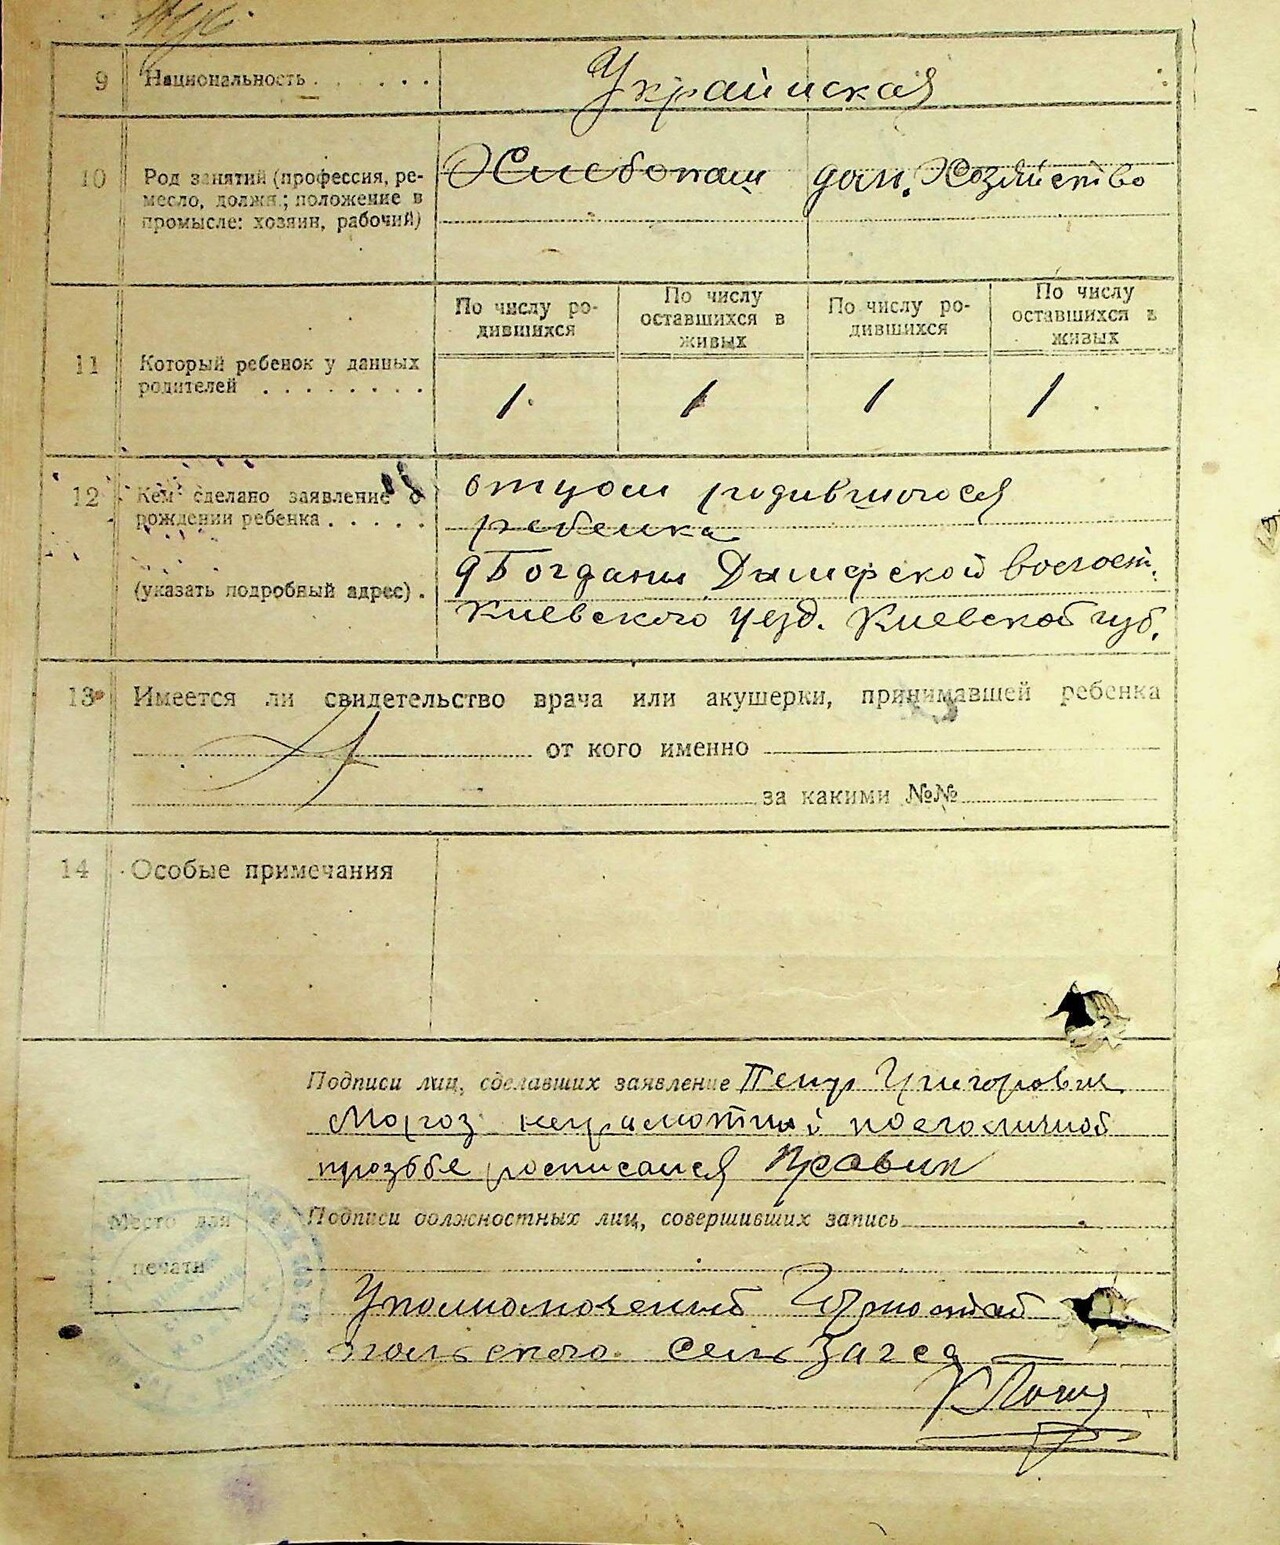 9 Национальность . . . . . . Украинская
10 Род занятий (профессия, ре-
месло, должн.; положение в
промысле: хозяин, рабочий)
Хлебопаш дом. Хозяйство
По числу ро-
дившихся
По числу
оставшихся в
живых
По числу ро-
дившихся
По числу
оставшихся в
живых
11 Который ребенок у данных
родителей . . . . . . . .
1 1 1 1
12 Кем сделано заявление о
рождении ребенка . . . . .
(указать подробный адрес) .
отцом родившогося
ребенка
д Богданы Дымерской волост.
Киевского уезд. Киевской губ.
13 Имеется ли свидетельство врача или акушерки, принимавшей ребенка
от кого именно
за какими №№
14 Особые примечания
Подписи лиц, сделавших заявление Петр Григорович
Мороз неграмотный по его личной
прозьбе росписался
Подписи должностных лиц, совершивших запись
Место для
печати
Уполномоченый
польского сельзагса